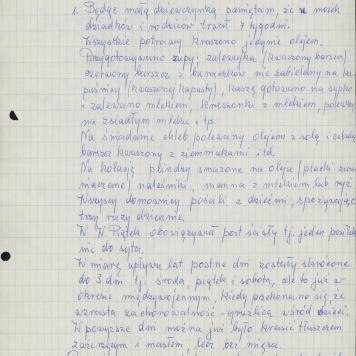 1. Będąc małą dziewczynką pamiętam, że u moich
dziadków i rodziców trwał 7 tygodni.
Wszystkie potrawy kraszono jedynie olejem.
Przygotowywano zupy: zalewajka (kwaszony barszcz)
czerwony barszcz z buraczków nie zabielany na ka-
puśnicy (kwaszonej kapusty), kaszę gotowano na sypko
i zalewano mlekiem, kraszonki z mlekiem, polewkę
na zsiadłym mleku i tp.
Na śniadanie chleb polewany olejem z solą i cebulą
barszcz kwaszony z ziemniakami i td.
Na kolację plindzy smażone na oleju (placki ziem-
niaczane) naleśniki, manna z mlekiem lub ryż.
Wszyscy domownicy posiłki z dziećmi, spożywając
trzy razy dziennie.
W W. Piątek obowiązywał post ścisły tj. jeden posiłek
nie do syta.
W miarę upływu lat postne dni zostały skrócone
do 3 dni tj. środa, piątek i sobota, ale to już w
okresie międzywojennym, kiedy przekonano się, że
wzrasta zachorowalność - gruźlica wśród dzieci.
W powyższe dni można już było krasić tłuszczem
zwierzęcym i masłem, lecz bez mięsa.